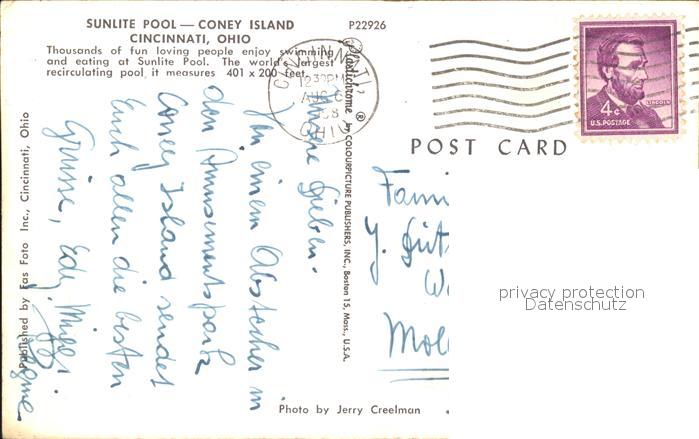 SUNLITE POOL — CONEY ISLAND
CINCINNATI, OHIO
Thousands of fun loving people enjoy swimming
and eating at Sunlite Pool. The world's largest
recirculating pool, it measures 401 x 200 feet.
P22926
CINCINNATI
12 30 PM
AUG
OHIO
4¢
LINCOLN
U.S. POSTAGE
POST CARD
Published by Eas Foto Inc., Cincinnati, Ohio
Plastichrome ® by COLOURPICTURE PUBLISHERS, INC., Boston 15, Mass., U.S.A.
Lieben.
In einem Abstecher in
den Amusementspark
Coney Island sendet
Euch allen die besten
Grüsse, Edy,
Fami
J.
Moll
privacy protection
Datenschutz
Photo by Jerry Creelman